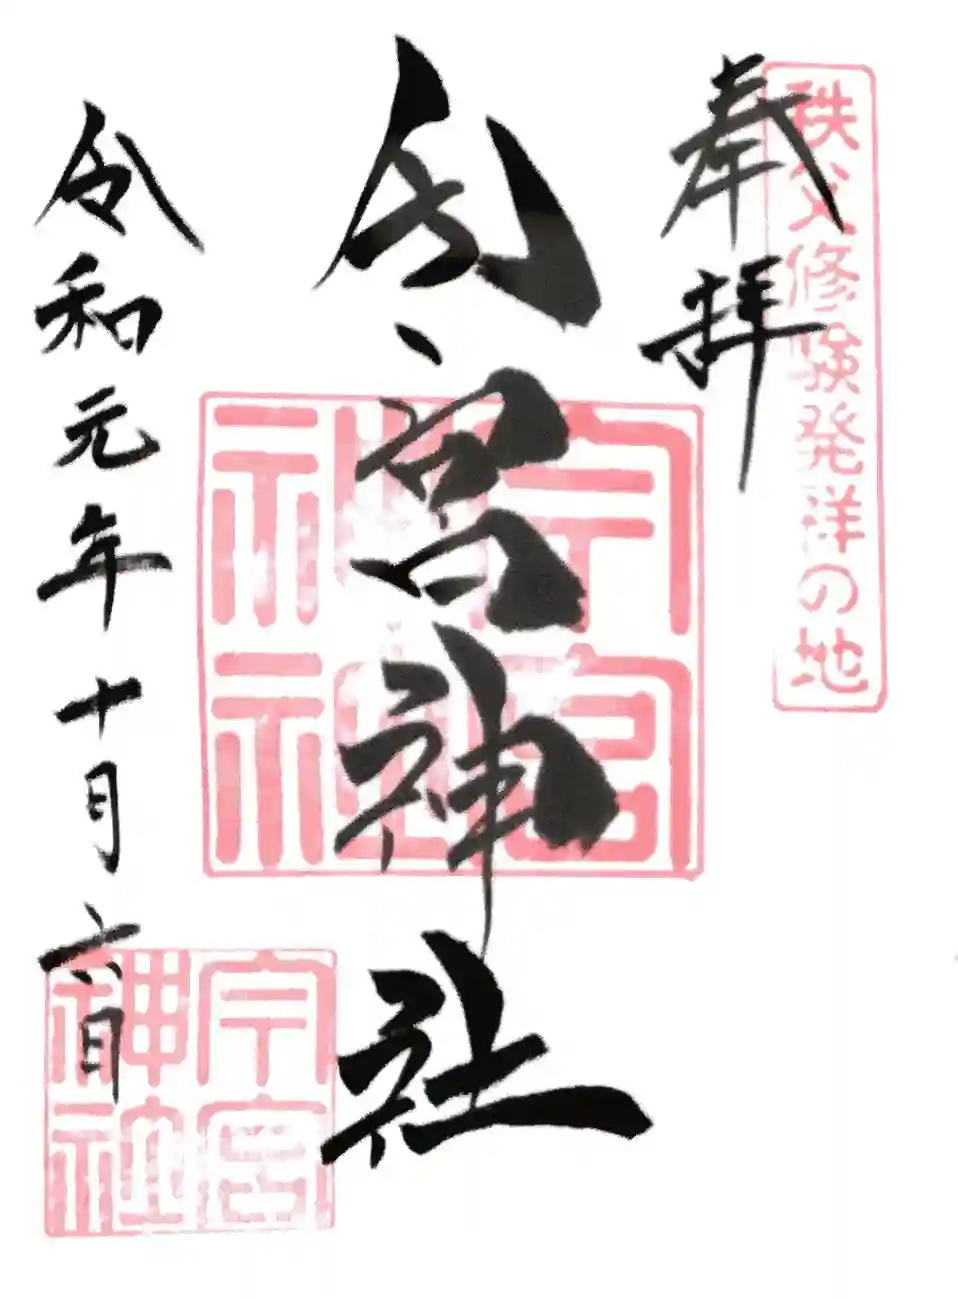 秩父修験発祥の地
奉拝
今宮神社
今宮神社
令和元年十月六日
今宮神社